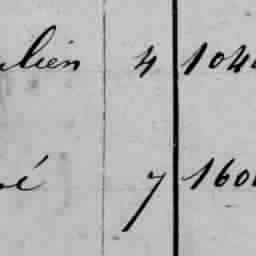 ulien 4 104
sé 7 160